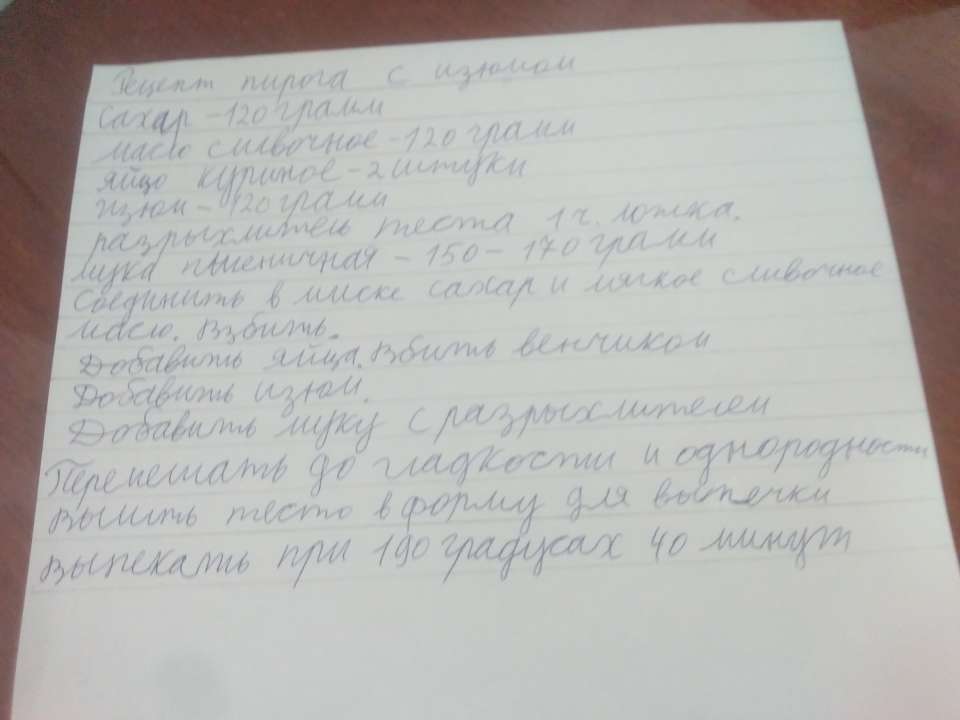 Рецепт пирога с изюмом
Сахар - 120 грамм
масло сливочное - 120 грамм
яйцо куриное - 2 штуки
изюм - 120 грамм
разрыхлитель теста 1 ч. ложка.
мука пшеничная - 150 - 170 грамм
Соединить в миске сахар и мягкое сливочное
масло. Взбить.
Добавить яйца. Вбить венчиком
Добавить изюм.
Добавить муку с разрыхлителем
Перемешать до гладкости и однородности
Вылить тесто в форму для выпечки
Выпекать при 190 градусах 40 минут